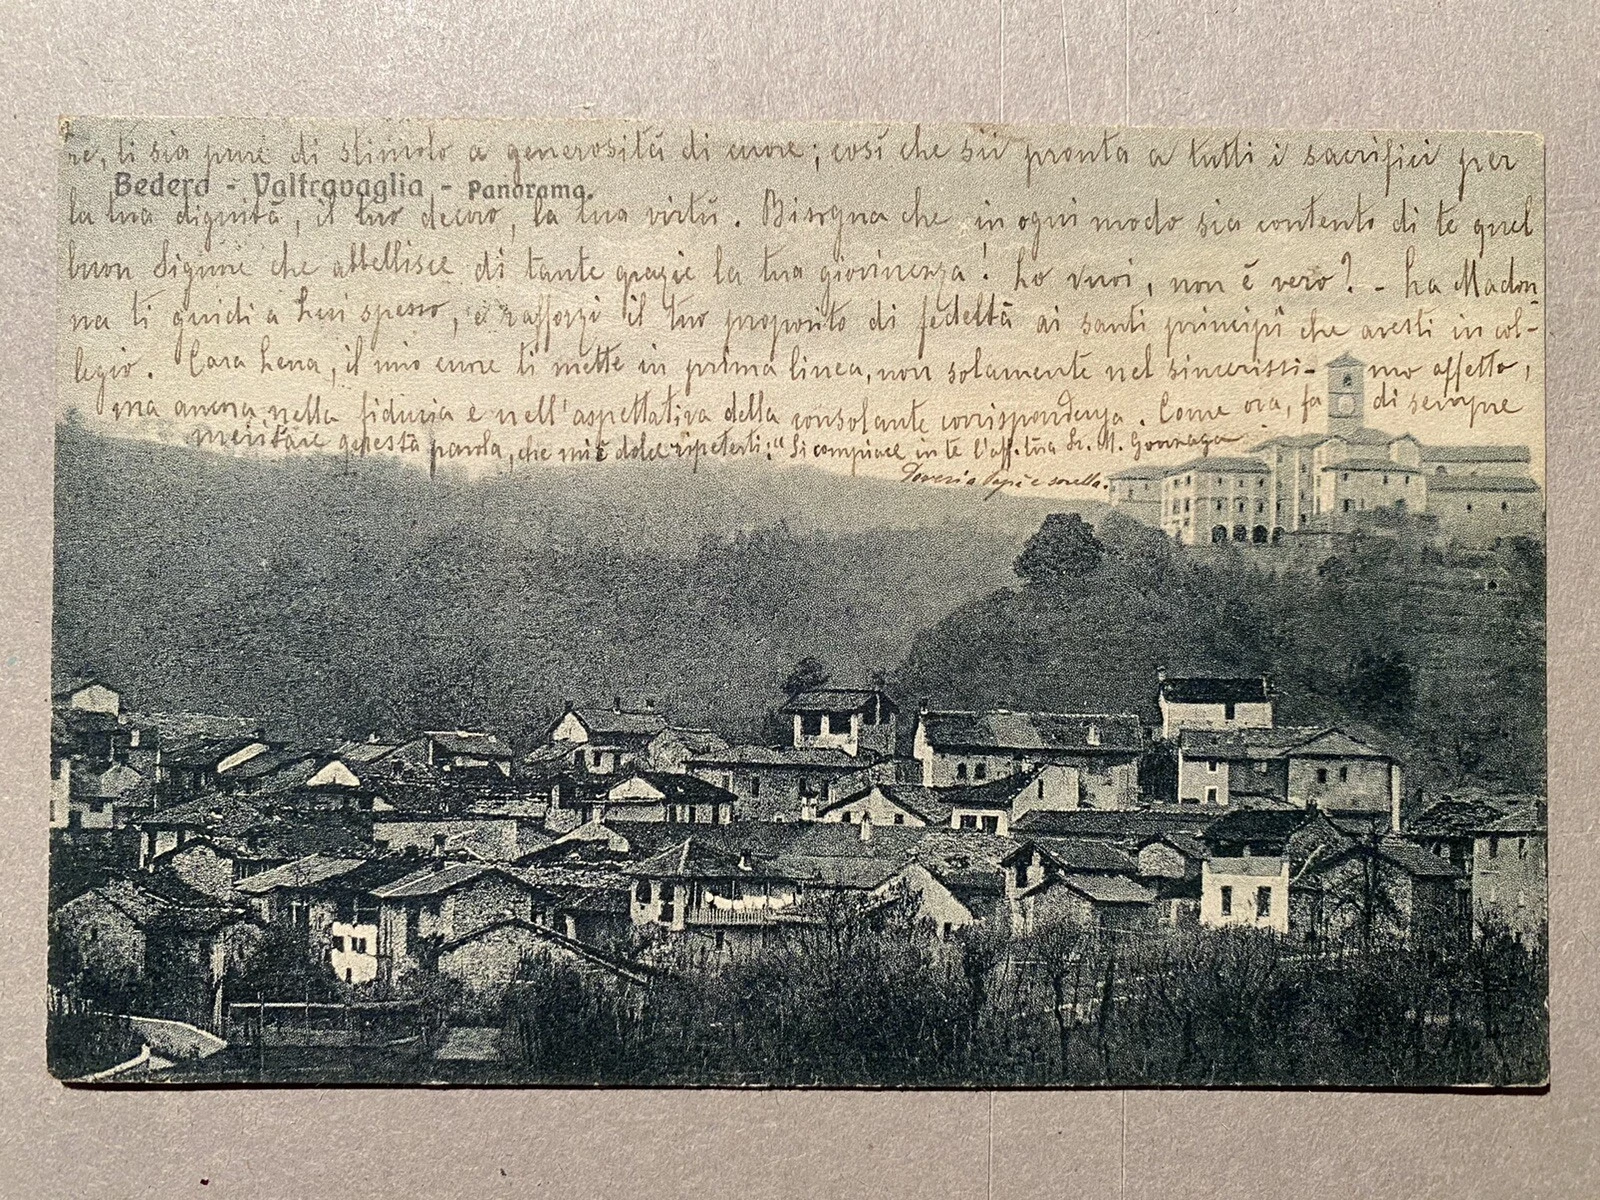 re, ti sia pure di stimolo a generosità di cuore; così che sii pronta a tutti i sacrifici per
Bedero - Valtravaglia - Panorama.
la tua dignità, il tuo decoro, la tua virtù. Bisogna che in ogni modo sia contento di te quel
buon Signore che abbellisce di tante grazie la tua giovinezza! Lo vuoi, non è vero? - La Madon
na ti guidi a Lui spesso, e rafforzi il tuo proposito di fedeltà ai santi principî che avesti in col-
legio. Cara Lena, il mio cuore ti mette in prima linea, non solamente nel sincerissi- mo affetto,
ma ancora nella fiducia e nell'aspettativa della consolante corrispondenza. Come ora, fa di sempre
meritare questa parola, che mi è dolce ripeterti: "Si compiace in te l'aff. tua Sr. M. Gonzaga
Doveri a Papà e sorella.